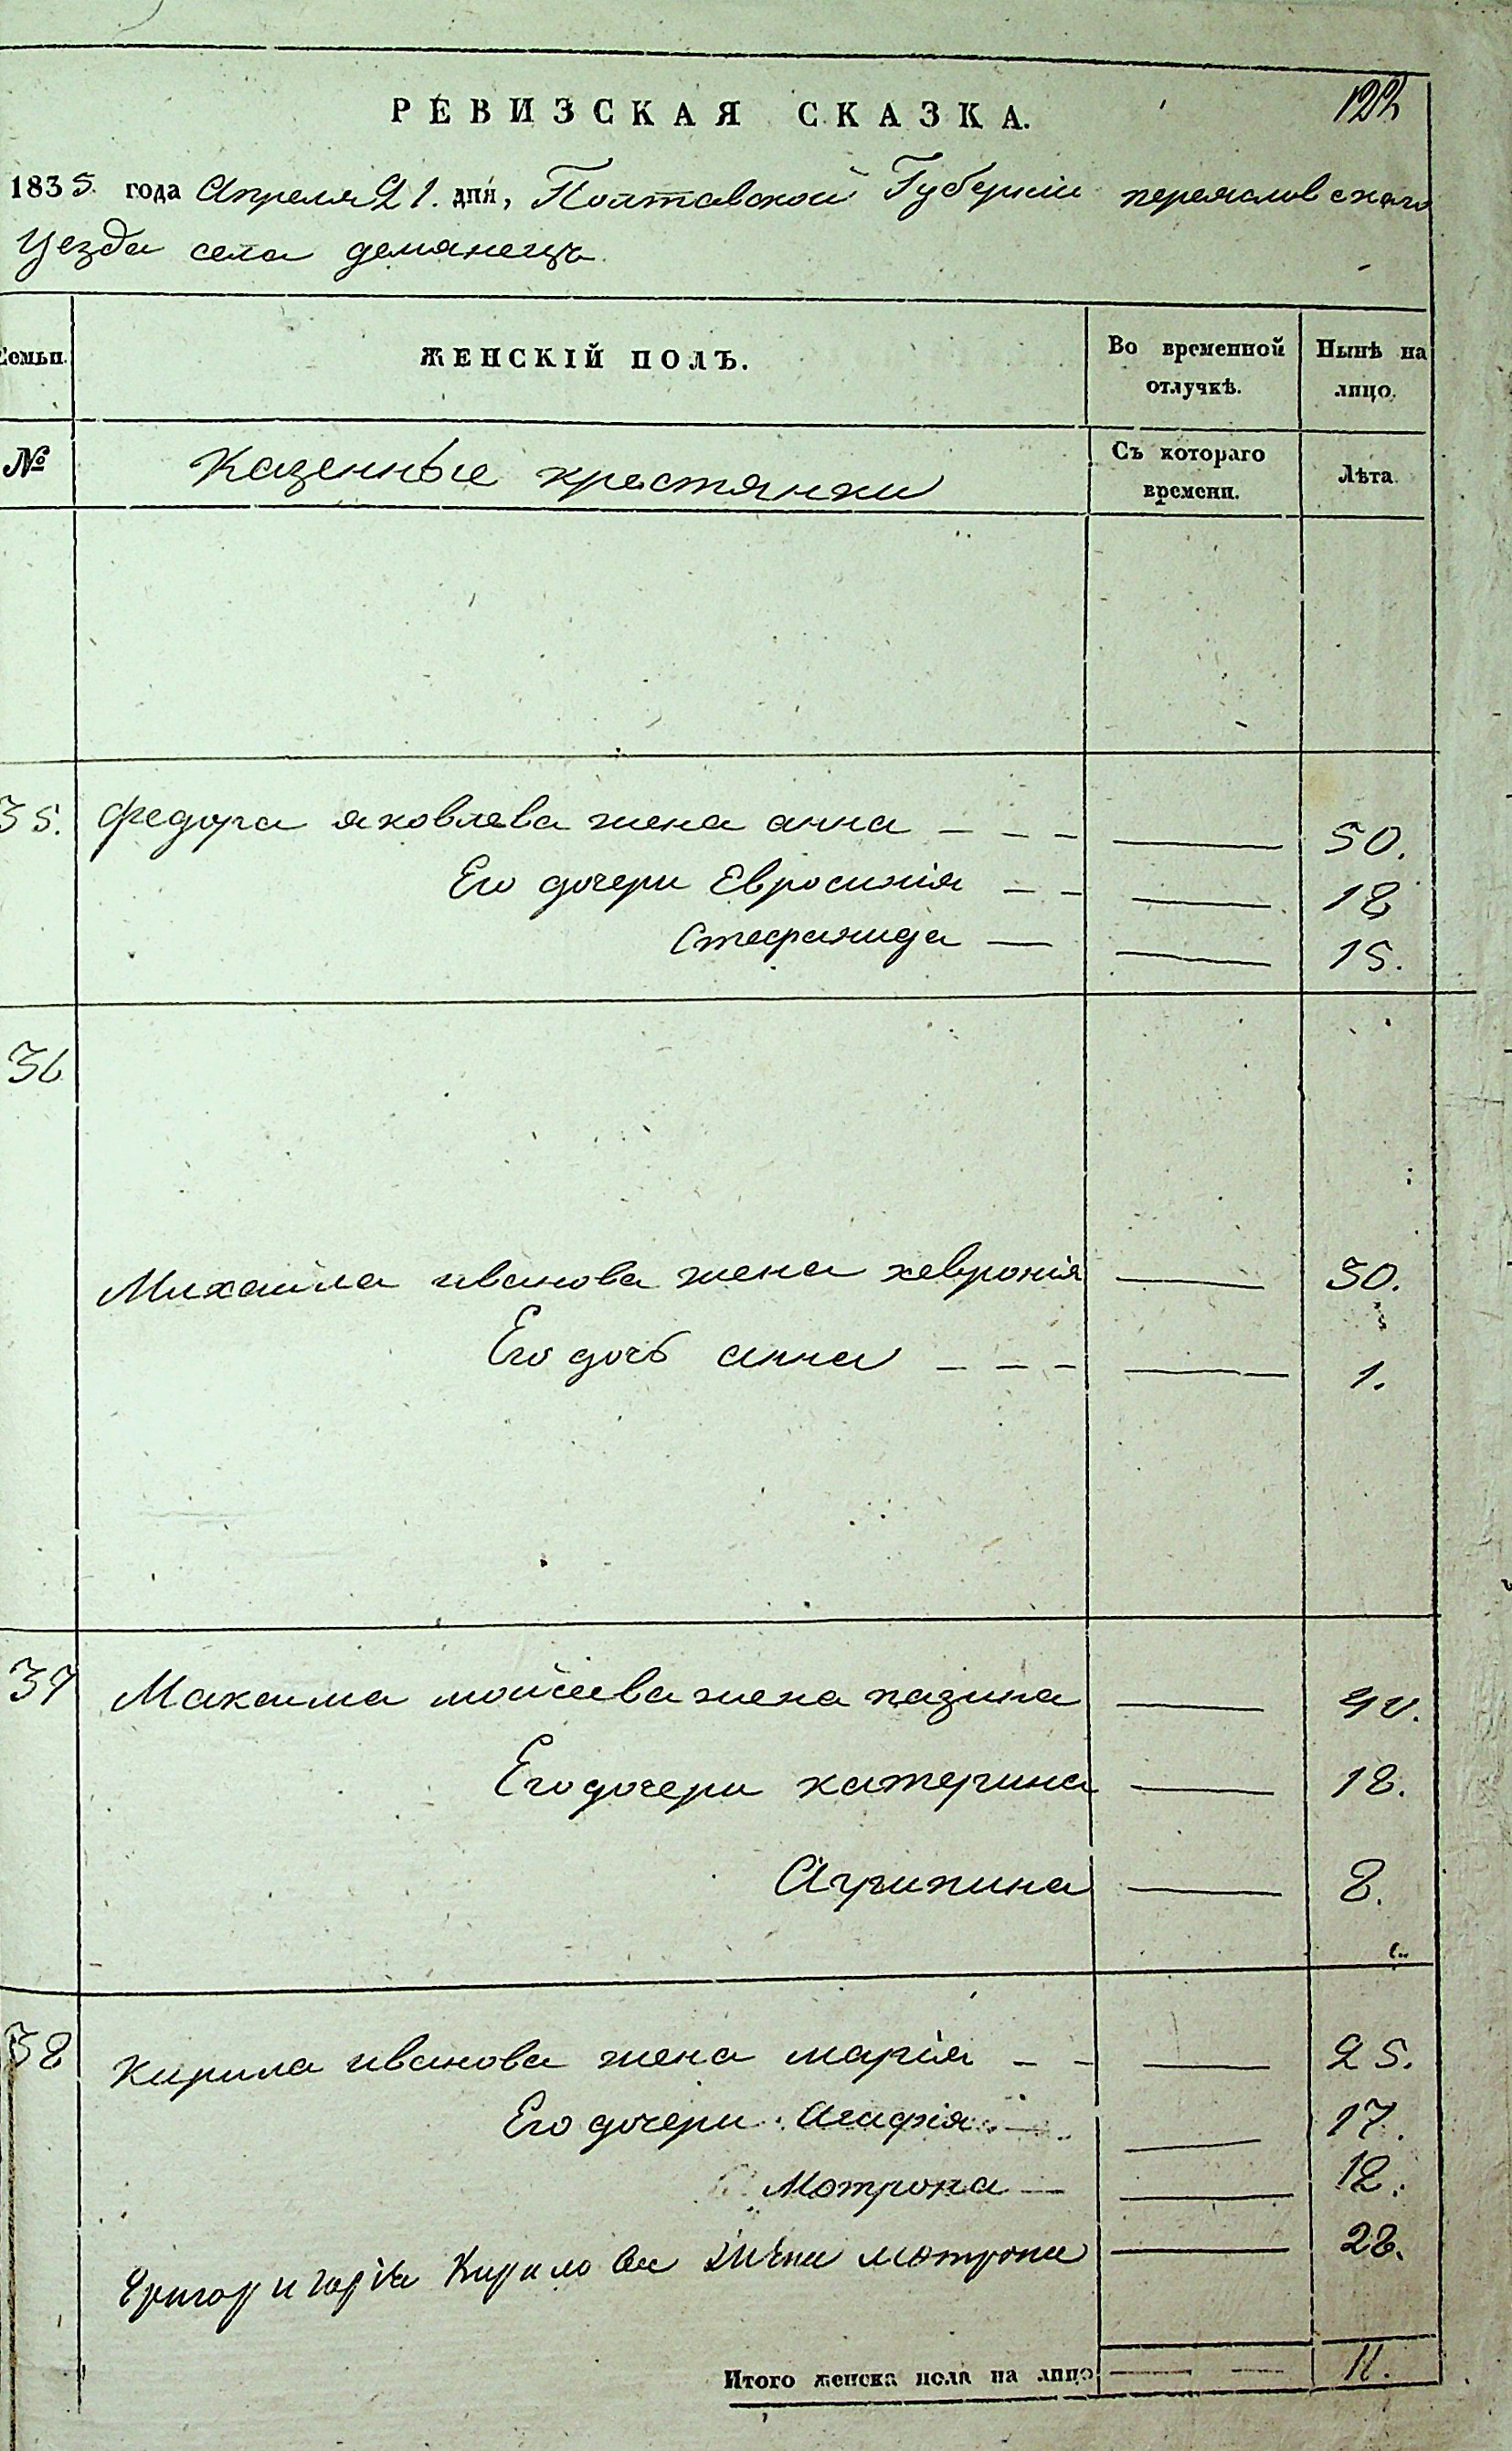 122
РЕВИЗСКАЯ СКАЗКА.
1835. года Апреля 21. дня, Полтавской Губернiи переяславского
Уезда села демянецъ
Семьи. ЖЕНСКІЙ ПОЛЪ. Во временной отлучкѣ. Нынѣ на лицо.
№ Казенные крестянки Съ котораго времени. Лѣта.
35. Федора яковлева жена анна — — — —— 50.
Его дочери Евросинiя — — —— 18
Стефанида — —— 15.
36
Михаила иванова жена хевронiя —— 30.
Его дочь анна — — — —— 1.
37 Максима мойсеева жена пазина —— 40.
Его дочери катерина —— 18.
Агрипина —— 8.
38 кирила иванова жена марiя — — —— 25.
Его дочери Агафiя — —— 17.
Мотрона — —— 12.
Кирилова жена мотрона —— 28.
Итого женска пола на лицо —— — 11.